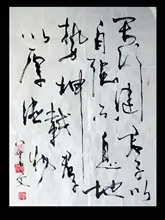 天行健君子以
自强不息地
势坤君子
以厚德载物